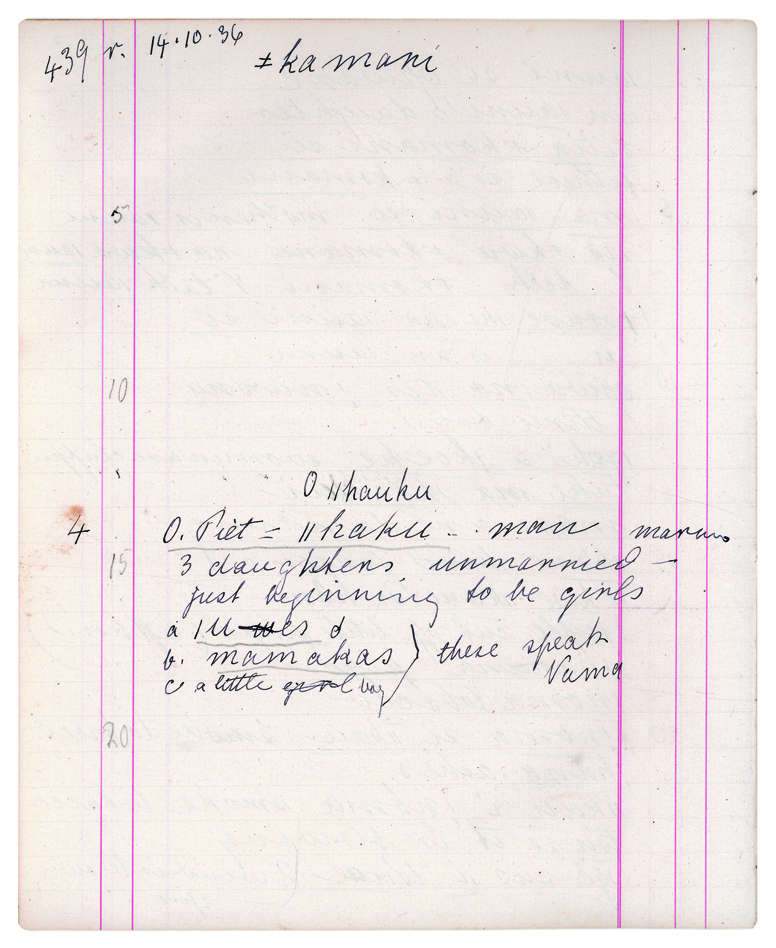 439 r. 14.10.36
ǂkamani
5
10
O ǁhauku
4 O. Piet = ǁhaku - man
15 3 daughters unmarried -
just beginning to be girls
a |u es d
b. mamakas } these speak
Nama
c a little girl boy
20